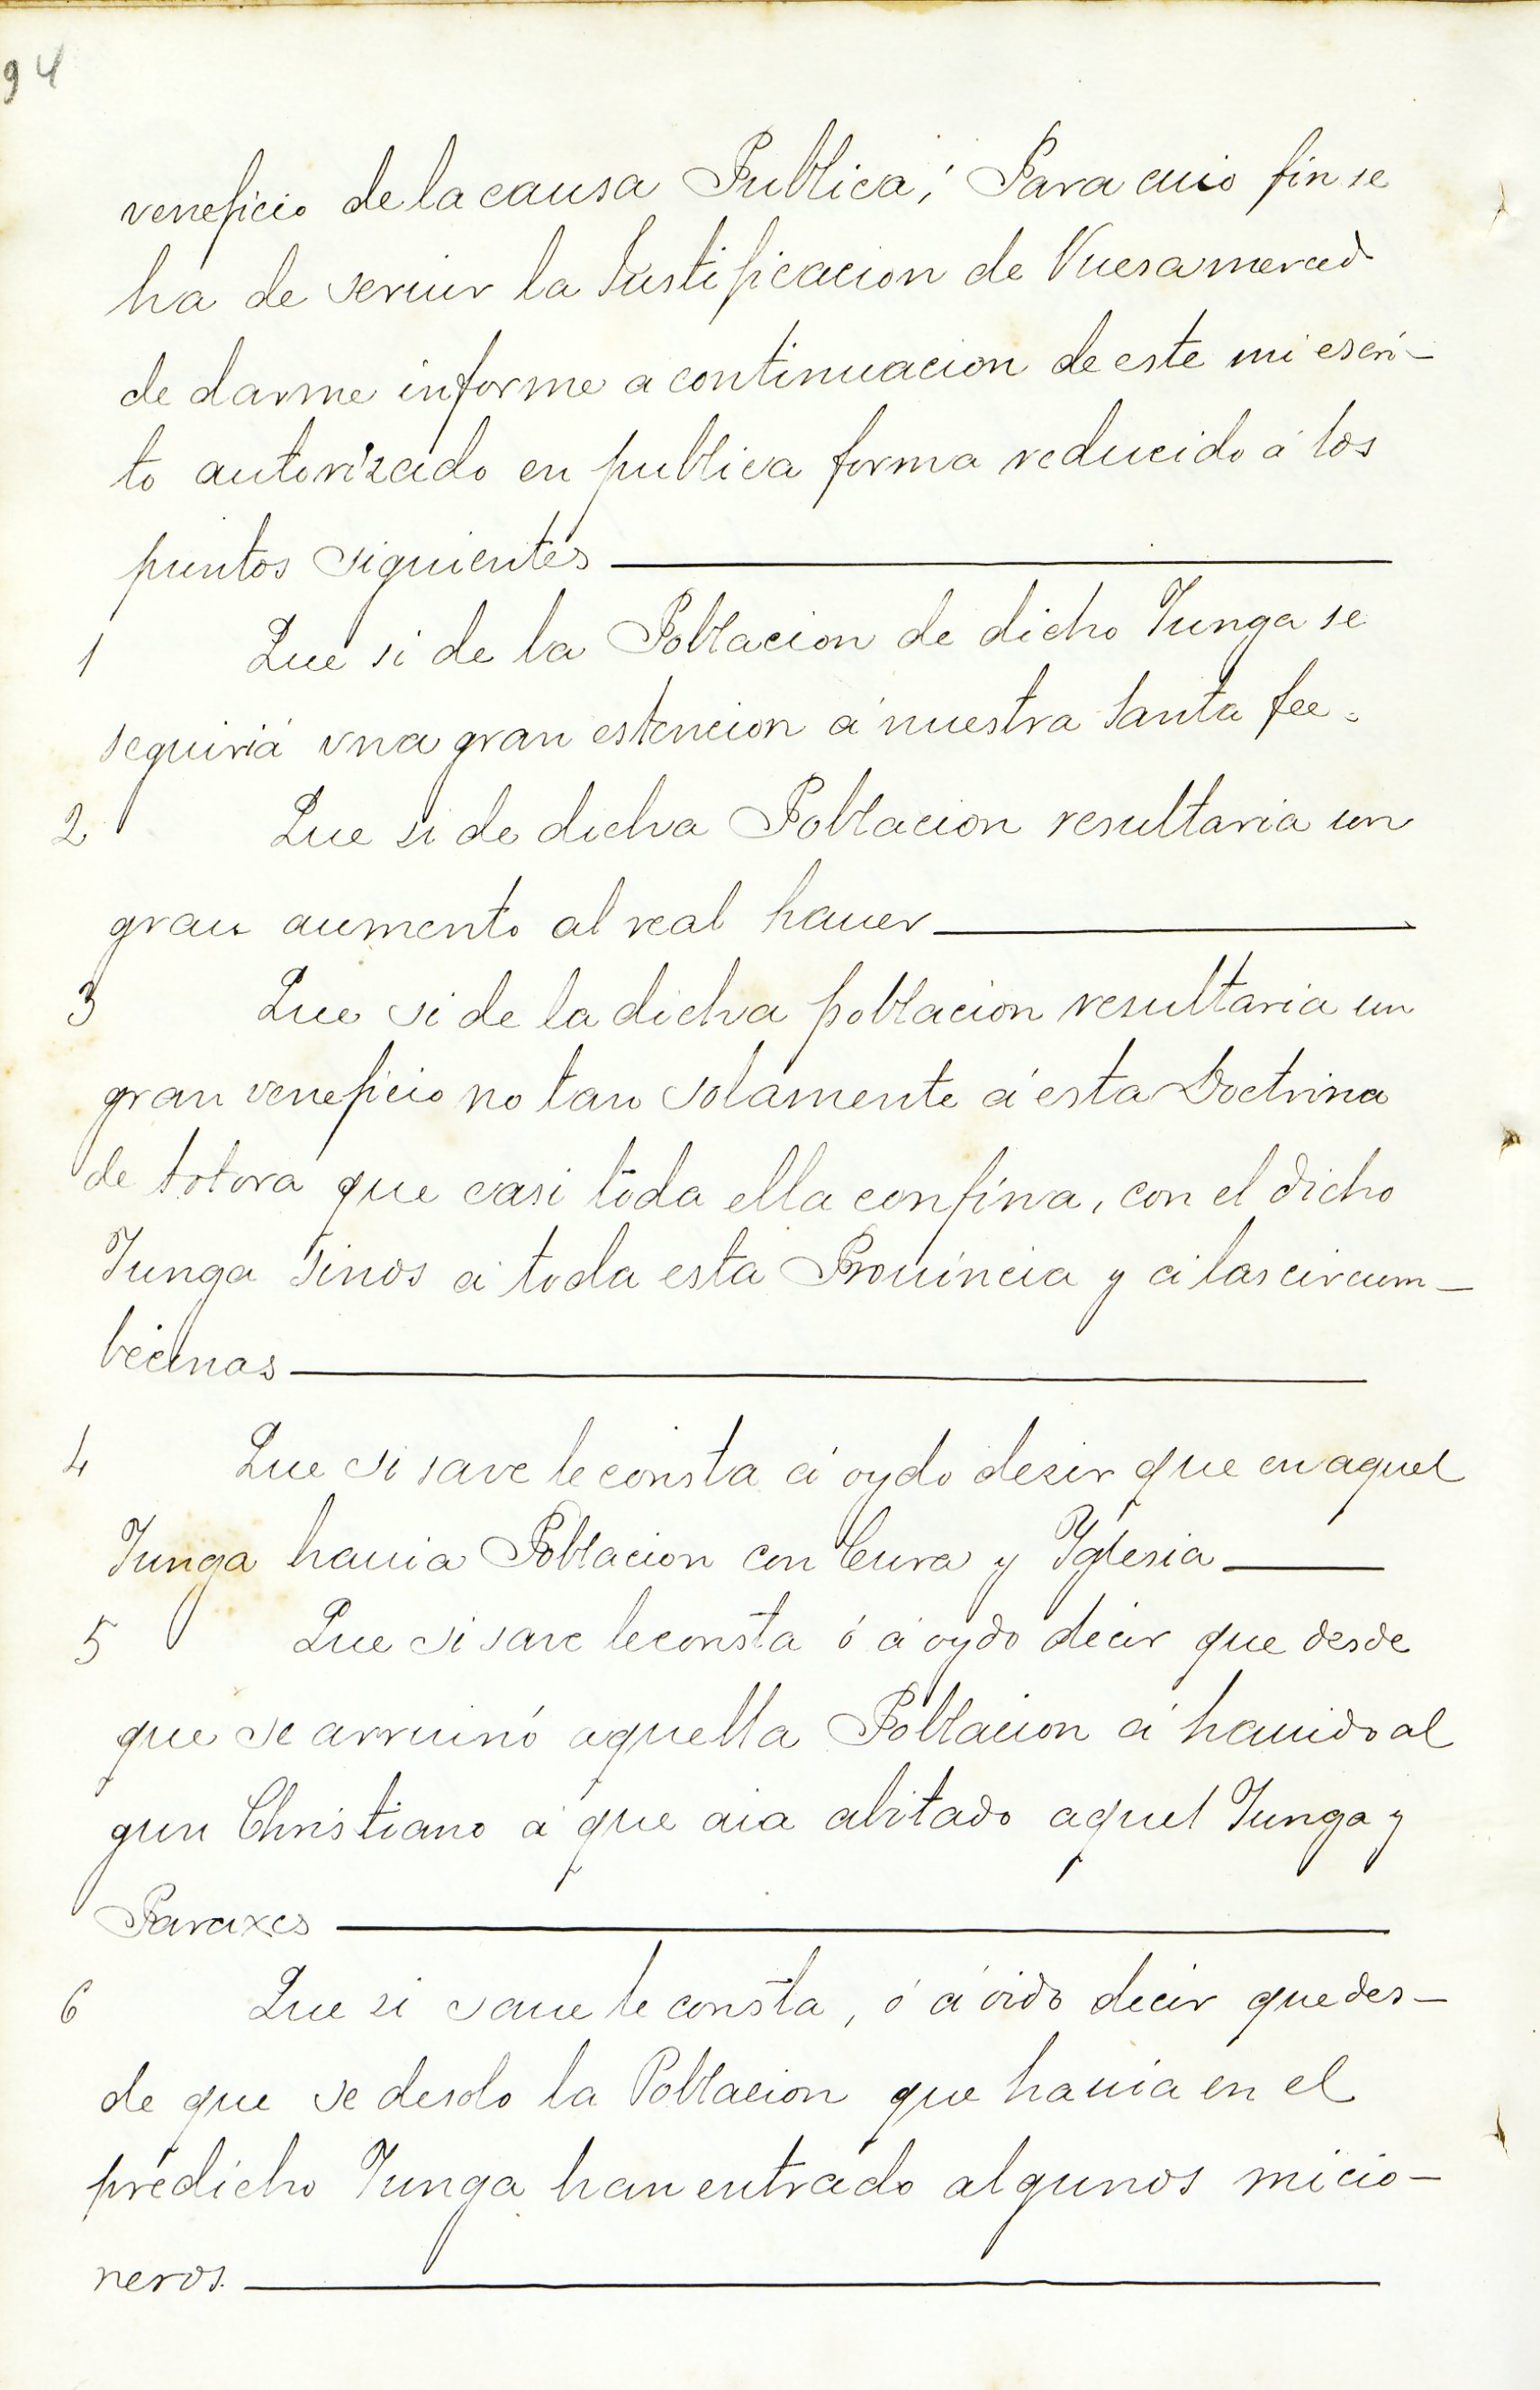 94
veneficio de la causa Publica; Para cuio fin se
ha de seruir la Justificacion de Vuesamerced
de darme informe a continuacion de este mi escri-
to autorizado en publica forma reducido á los
puntos siguientes
1 Que si de la Poblacion de dicho Junga se
seguiriá vna gran estencion á nuestra Santa fee.
2 Que si de dicha Poblacion resultaria un
gran aumento al real hauer
3 Que si de la dicha poblacion resultaria un
gran veneficio no tan solamente á esta Doctrina
de totora que casi toda ella confina, con el dicho
Junga sinos á toda esta Prouincia y á las circum-
becinas
4 Que si save le consta á oydo desir que en aquel
Junga hauia Poblacion con Cura y Yglesia
5 Que si save le consta ó á oydo decir que desde
que se arruinó aquella Poblacion á hauido al
gun Christiano á que aia abitado aquel Junga y
Paraxes
6 Que si saue le consta, ó á oido decir que des-
de que se desolo la Poblacion que hauia en el
predicho Junga han entrado algunos micio-
neros.